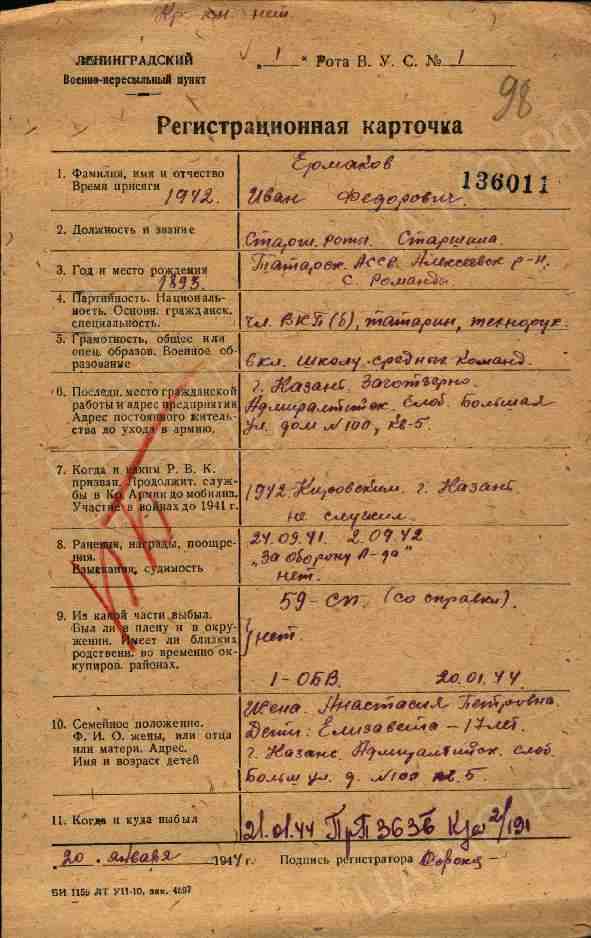 Кр. кн. нет
ЛЕНИНГРАДСКИЙ
Военно-пересыльный пункт
„1“ Рота В. У. С. № 1
98
Регистрационная карточка
1. Фамилия, имя и отчество
Время присяги 1942.
Ермаков
Иван Федорович.
136011
2. Должность и звание
Старш. роты. Старшина.
3. Год и место рождения
1893.
Татарск. АССР. Алексеевск р-н.
с. Романды.
4. Партийность. Националь-
ность. Основн. гражданск.
специальность.
чл. ВКП(б), татарин, технорук.
5. Грамотность, общее или
спец. образов. Военное об-
разование
6 кл. школу средных команд.
6. Последн. место гражданской
работы и адрес предприятия
Адрес постоянного житель-
ства до ухода в армию.
г. Казант. Заготзерно.
Адмиралтиск. Слоб. Большая
ул. дом № 100, кв-5.
7. Когда и каким Р. В. К.
призван. Продолжит. служ-
бы в Кр. Армии до мобилиз.
Участие в войнах до 1941 г.
1942. Кировским. г. Казант
не служил.
8. Ранения, награды, поощре-
ния.
Взыскания, судимость
24.09.41. 2.09.42
„За оборону Л-да“
нет.
9. Из какой части выбыл.
Был ли в плену и в окру-
жении. Имеет ли близких
родственн. во временно ок-
купиров. районах.
59-СП. (со справки).
нет.
1-ОБВ. 20.01.44
10. Семейное положение.
Ф. И. О. жены, или отца
или матери. Адрес.
Имя и возраст детей
Жена. Анастасия Петровна.
Дети: Елизавета – 17 лет.
г. Казанс. Адмиралтийск. слоб.
Больш ул. д. № 100 кв. 5.
11. Когда и куда выбыл
21.01.44 ПрП 363б
20 . января 1944 г. Подпись регистратора
БИ 1159 ЛТ УП-10, зак. 4897